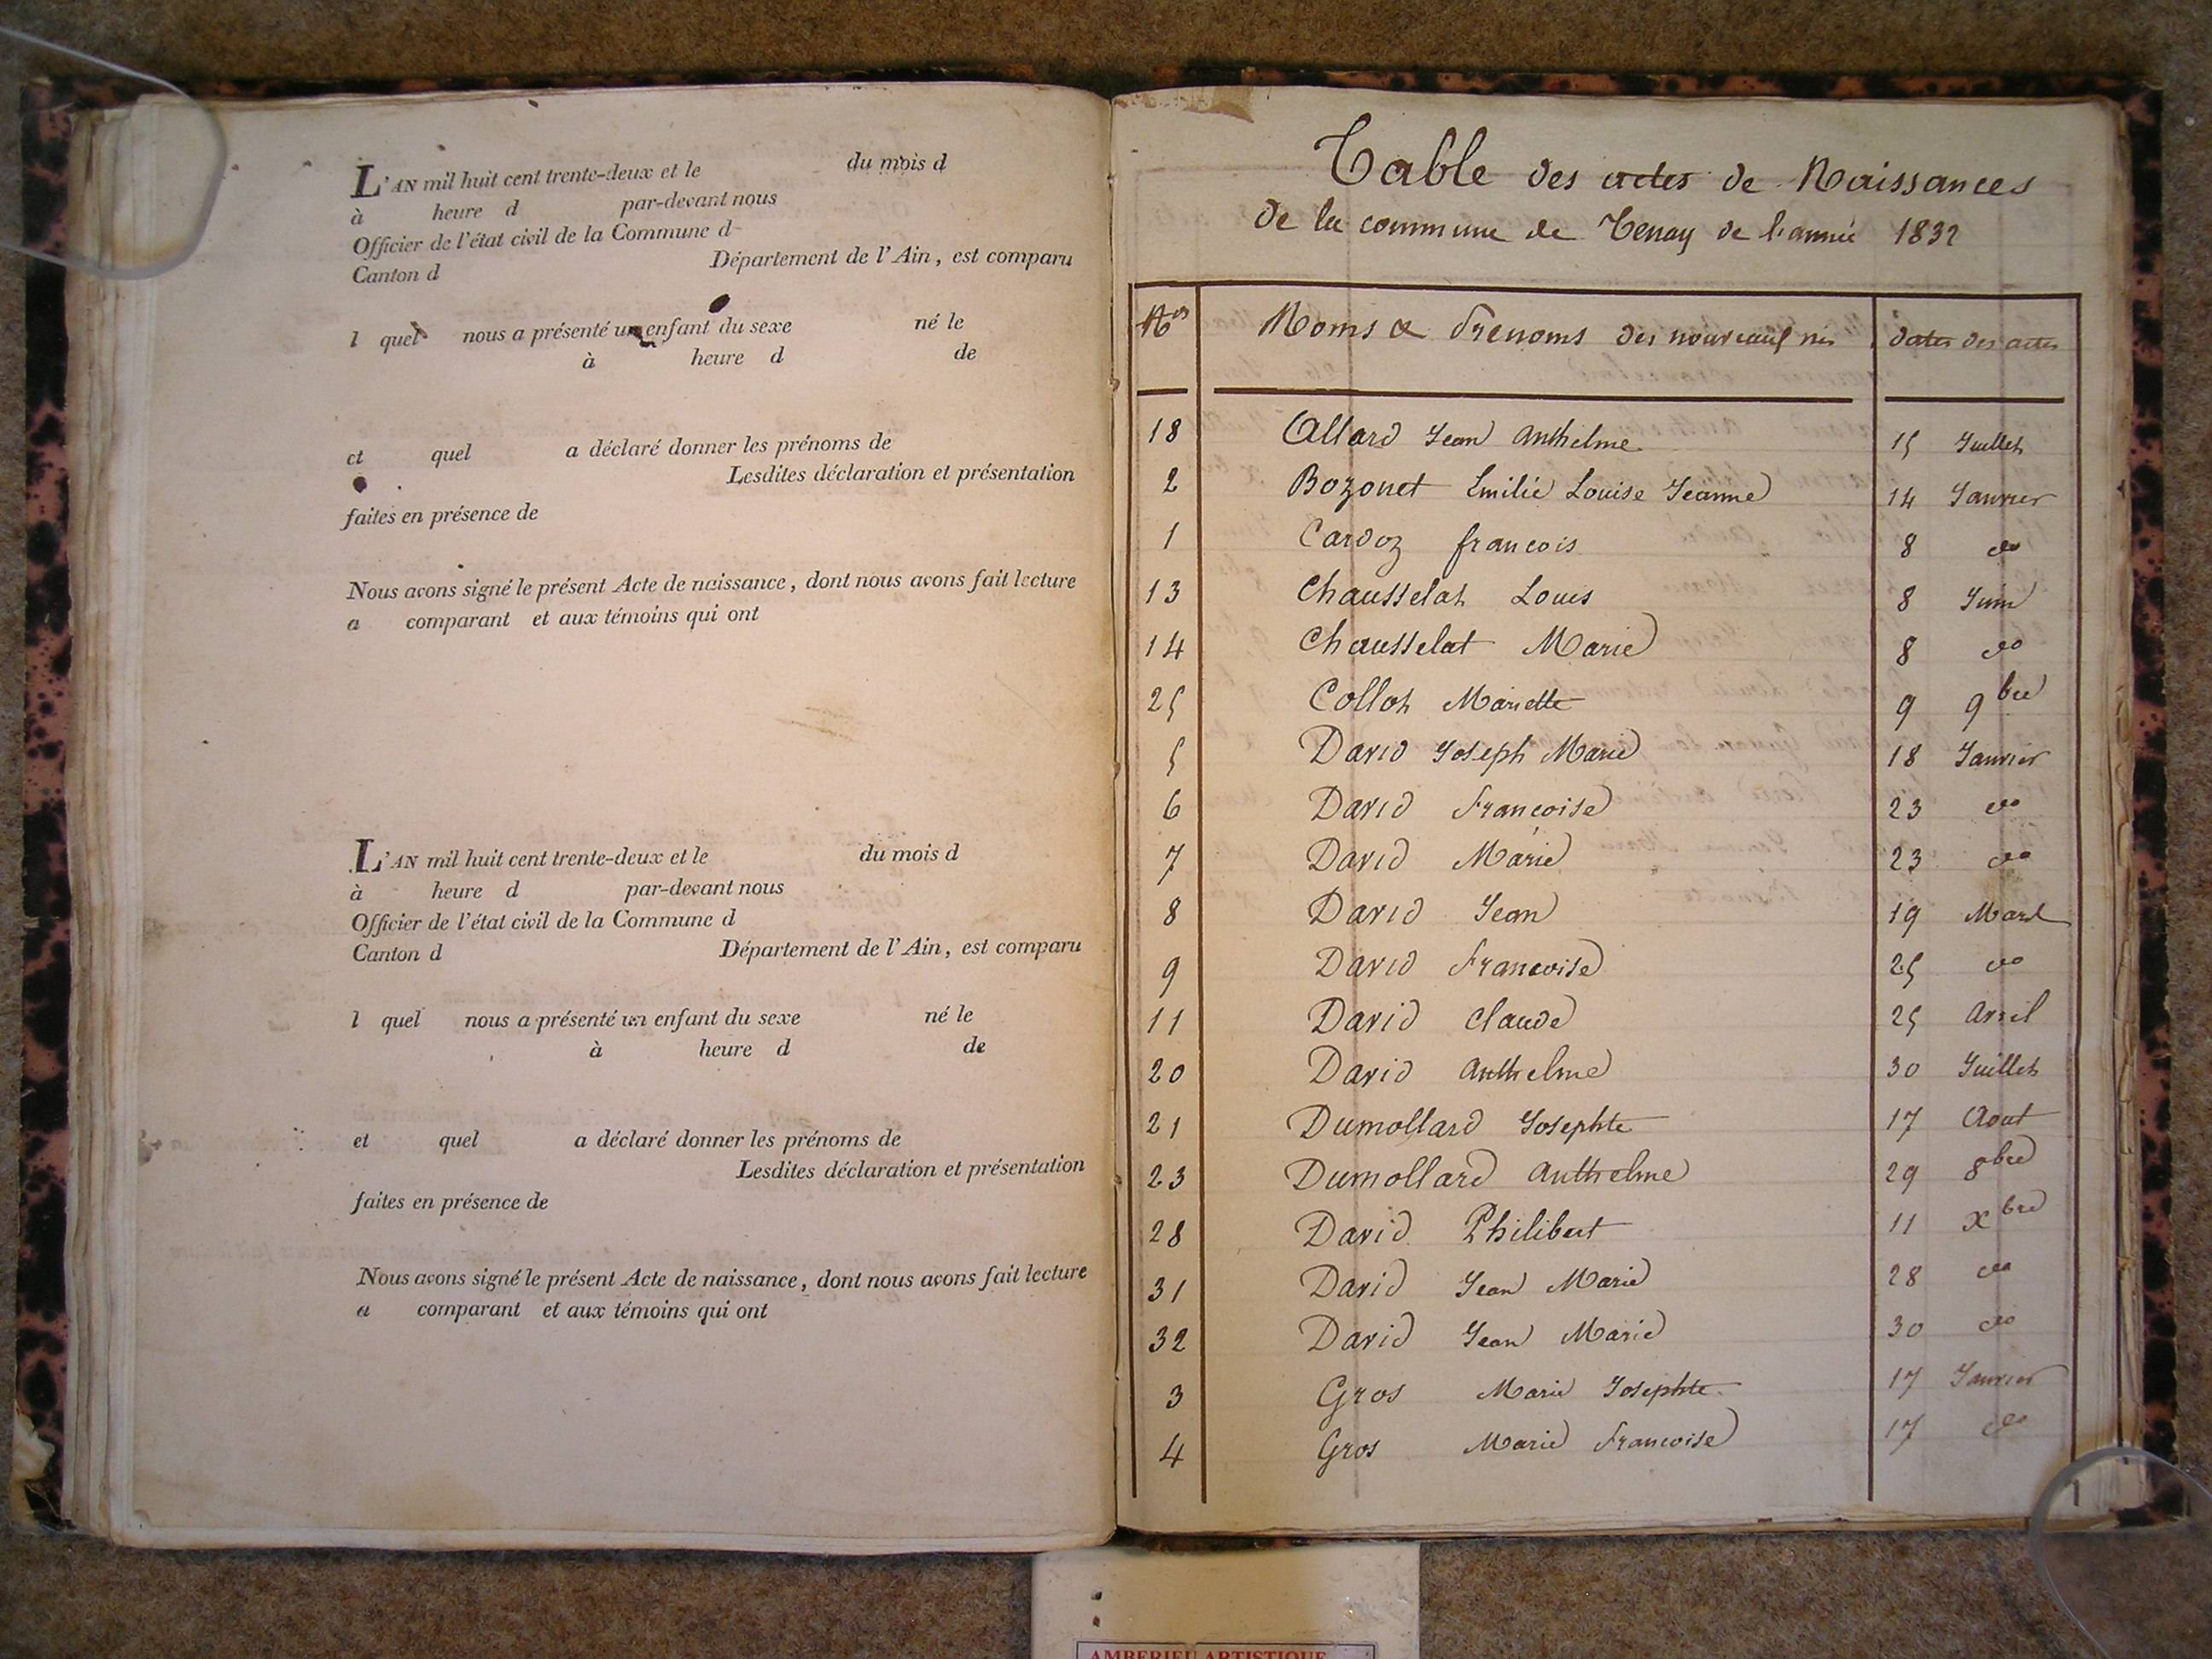 L'AN mil huit cent trente-deux et le du mois d
à heure d par-devant nous
Officier de l'état civil de la Commune d
Canton d Département de l'Ain, est comparu
l quel nous a présenté un enfant du sexe né le
à heure d de
et quel a déclaré donner les prénoms de
Lesdites déclaration et présentation
faites en présence de
Nous avons signé le présent Acte de naissance, dont nous avons fait lecture
a comparant et aux témoins qui ont
L'AN mil huit cent trente-deux et le du mois d
à heure d par-devant nous
Officier de l'état civil de la Commune d
Canton d Département de l'Ain, est comparu
l quel nous a présenté un enfant du sexe né le
à heure d de
et quel a déclaré donner les prénoms de
Lesdites déclaration et présentation
faites en présence de
Nous avons signé le présent Acte de naissance, dont nous avons fait lecture
a comparant et aux témoins qui ont
Table des actes de Naissances
de la commune de Tenay de l'année 1832
Nos Noms & Prenoms des nouveaux nés dates des actes
18 Allard Jean Anthelme 15 Juillet
2 Bozonet Emilie Louise Jeanne 14 Janvier
1 Cardoz francois 8 do
13 Chausselat Louis 8 Juin
14 Chausselat Marie 8 do
25 Collot Mariette 9 9bre
5 David Joseph Marie 18 Janvier
6 David francoise 23 do
7 David Marie 23 do
8 David Jean 19 Mars
9 David francoise 25 do
11 David Claude 25 Avril
20 David Anthelme 30 Juillet
21 Dumollard Josephte 17 Aout
23 Dumollard Anthelme 29 8bre
28 David Philibert 11 xbre
31 David Jean Marie 28 do
32 David Jean Marie 30 do
3 Gros Marie Josephte 17 Janvier
4 Gros Marie francoise 17 do
AMBERIEU ARTISTIQUE